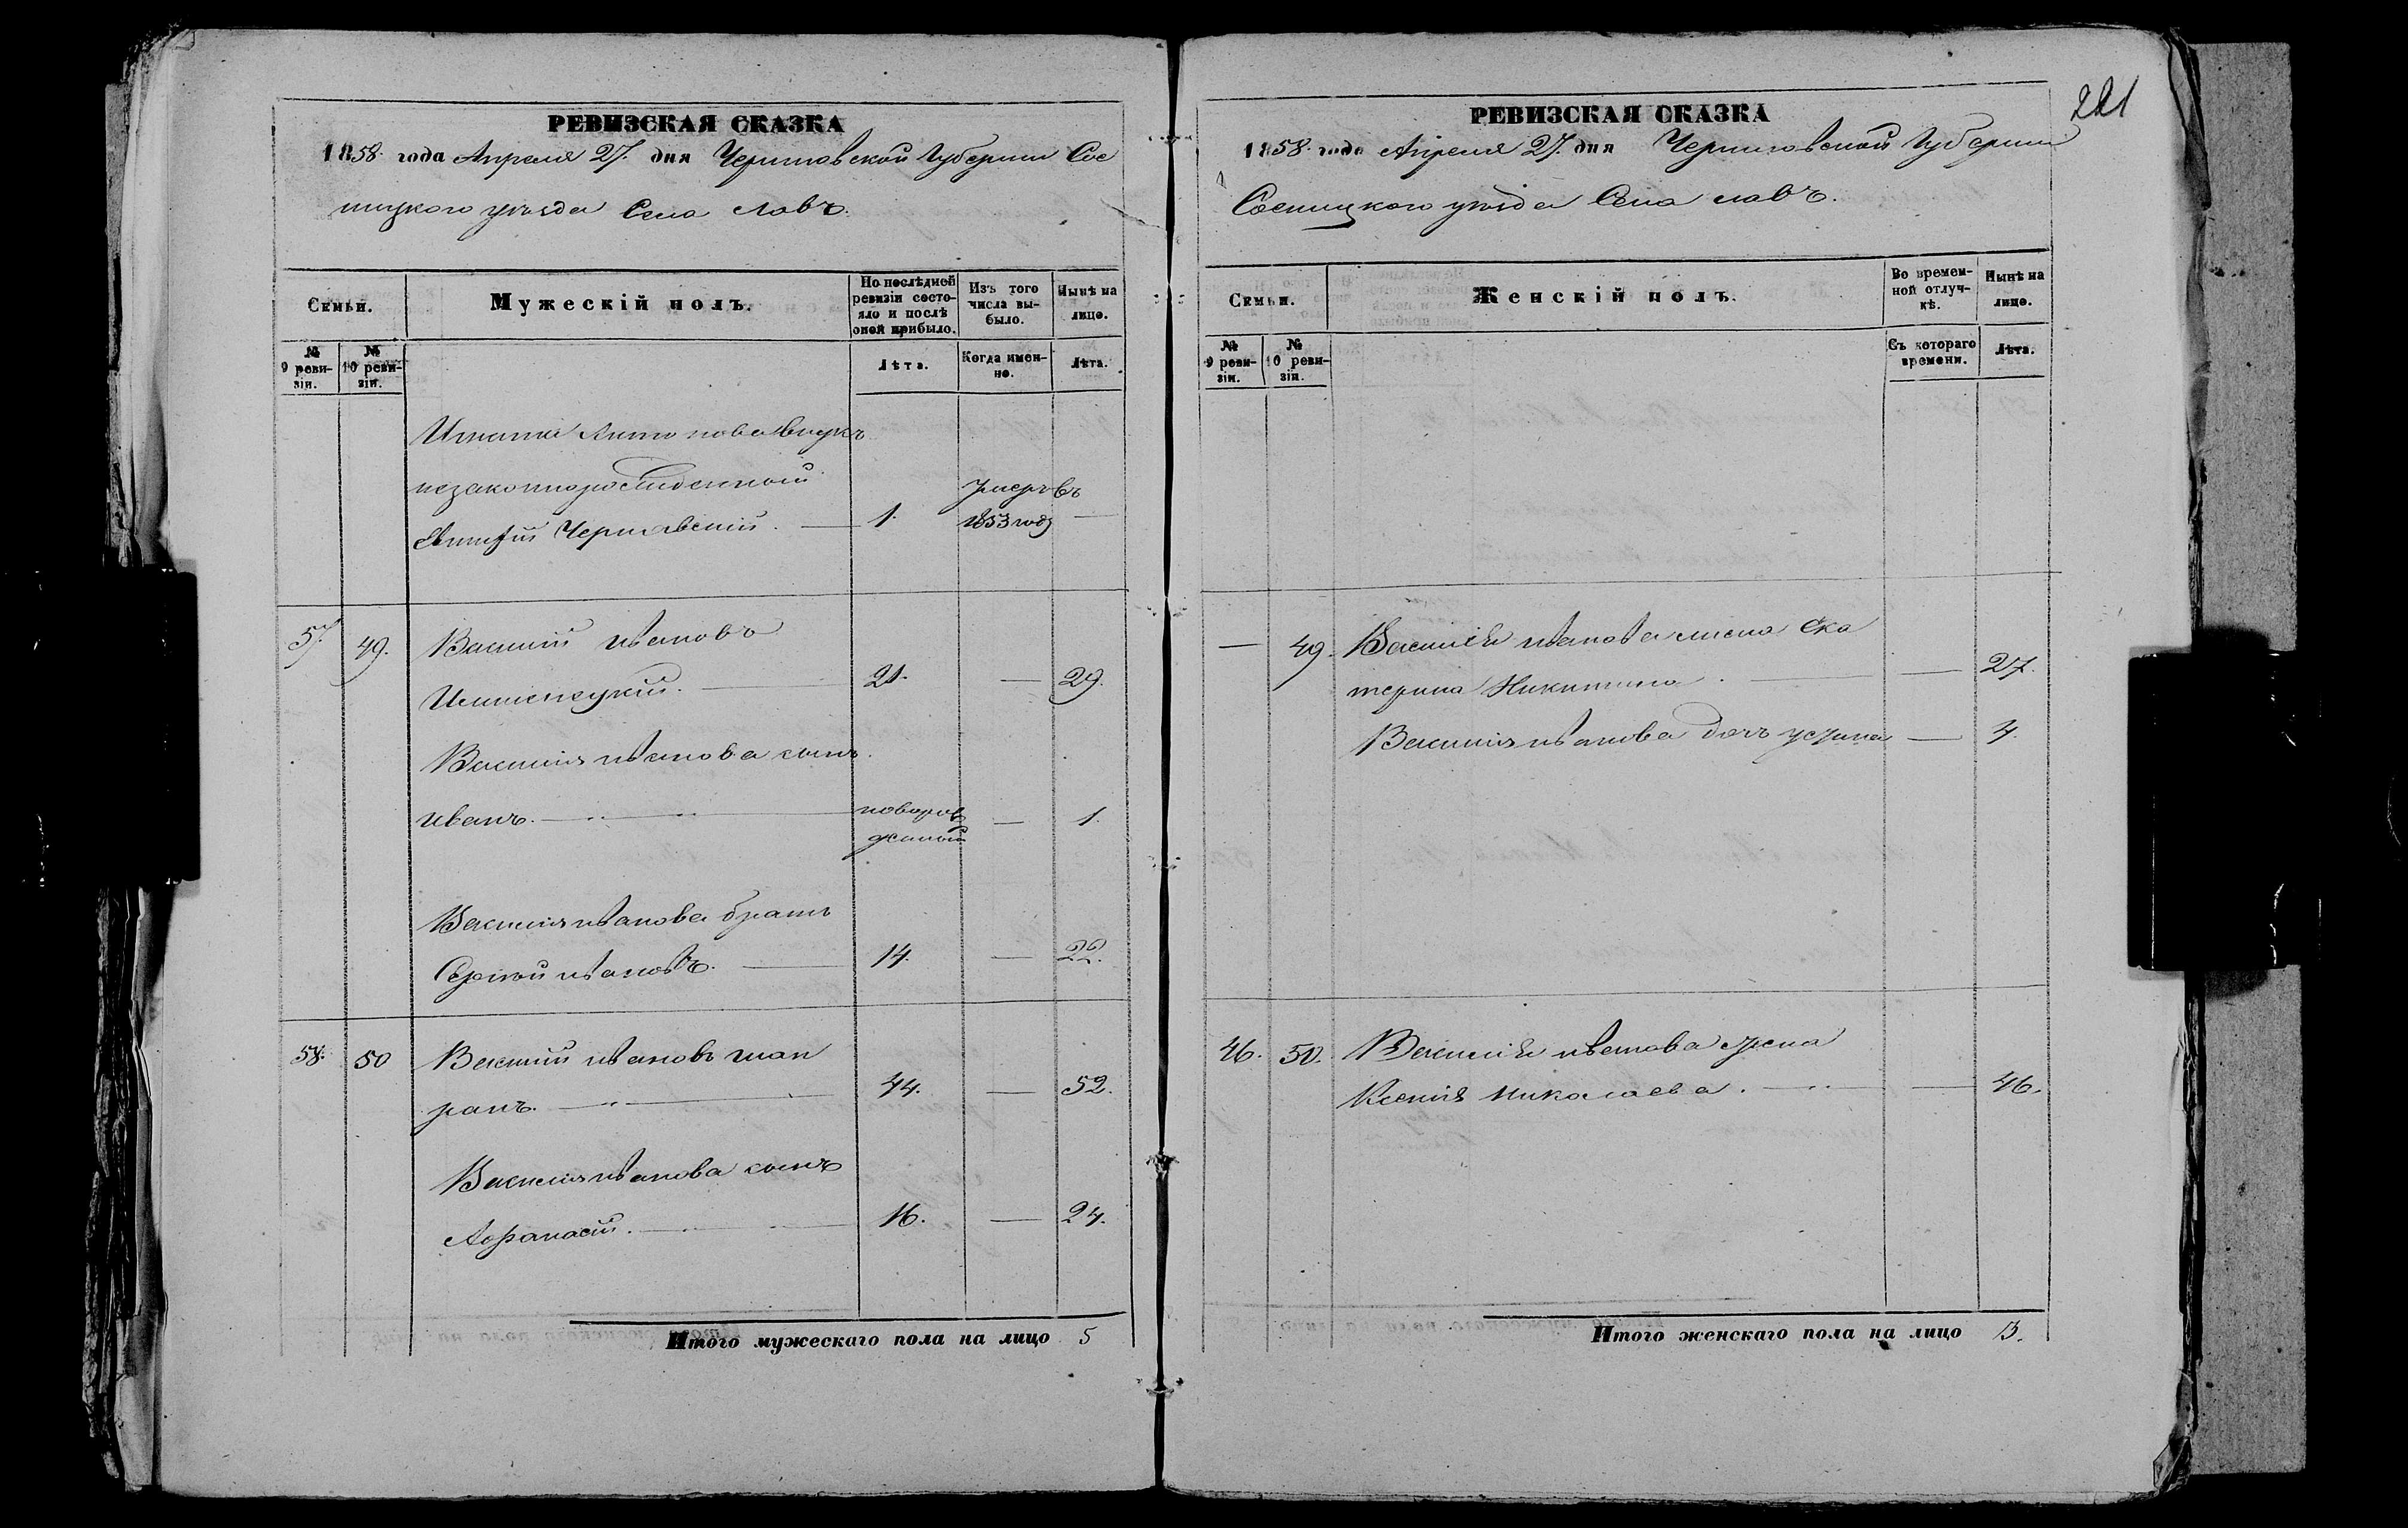 РЕВИЗСКАЯ СКАЗКА
1858 года Апреля 27. дня Черниговской Губернии Сос
ницкого уѣзда Села Лавъ.
Семьи.
Мужескій полъ.
По послѣдней ревизіи состояло и послѣ оной прибыло.
Изъ того числа выбыло.
Нынѣ на лицо.
№ 9 ревизіи.
№ 10 ревизіи.
Лѣта.
Когда именно.
Лѣта.
Игната Антонова внукъ
незаконнорожденной
Евтифій Чернявский. — 1. умеръ въ 1853 году —
57. 49. Василий Ивановъ
— 21. — 29.
Василия Иванова сынъ
Иванъ. — новорожденной — 1.
Василия Иванова братъ
Сергей Ивановъ. — 14. — 22.
58. 50 Василий Ивановъ Шап
ранъ. — 44. — 52.
Василия Иванова сынъ
Афанасий. — 16. — 24.
Итого мужескаго пола на лицо 5
221
РЕВИЗСКАЯ СКАЗКА
1858 года Апреля 27. дня Черниговской Губернии
Сосницкого уѣзда Села Лавъ.
Семьи.
Женскій полъ.
Во временной отлучкѣ.
Нынѣ на лицо.
№ 9 ревизіи.
№ 10 ревизіи.
Съ котораго времени.
Лѣта.
— 49. Василия Иванова жена Ека
терина Никитина. — — 27.
Василия Иванова дочь Устина — 4.
46. 50. Василия Иванова жена
Ксения Николаева. — — 46.
Итого женскаго пола на лицо 3.